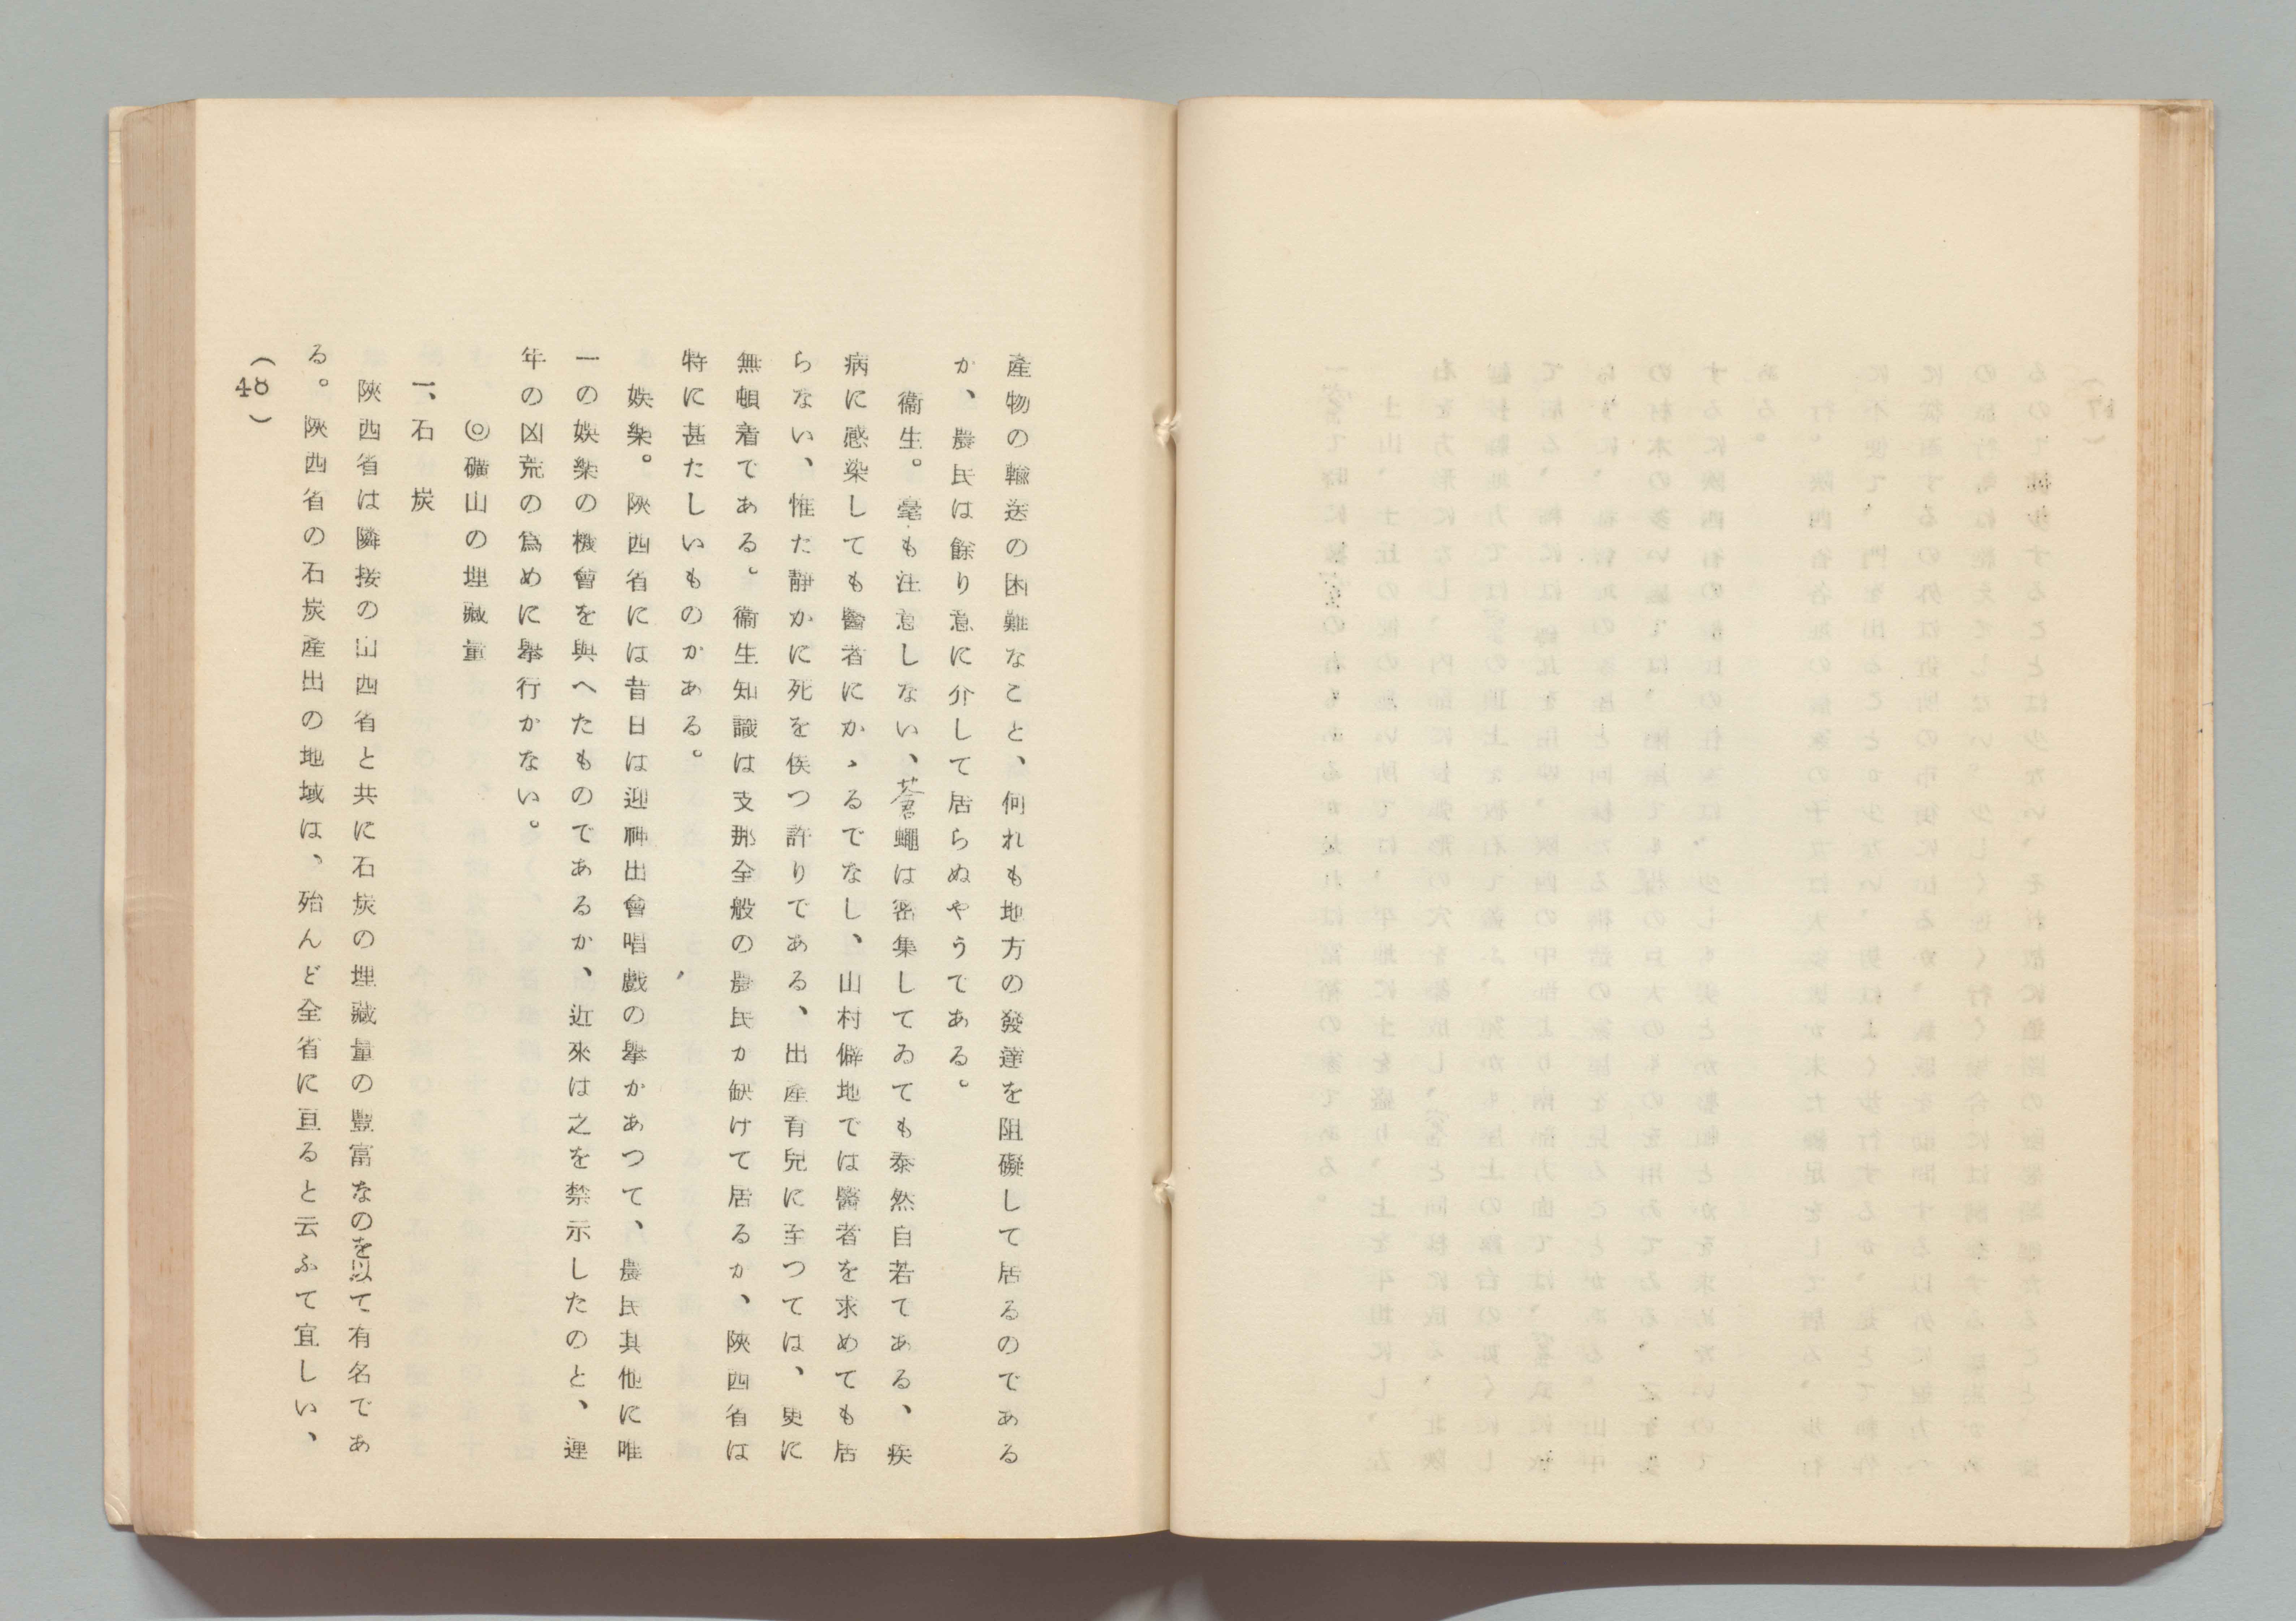 產物の輸送の困難なこと、何れも地方の發達を阻礙して居るのである
か、農民は餘り意に介して居らぬやうである。
衞生。毫も注意しない、蒼蠅は密集してゐても泰然自若てある、疾
病に感染しても醫者にかゝるでなし、山村僻地では醫者を求めても居
らない、惟た靜かに死を俟つ許りである、出產育兒に至つては、更に
無頓着である。衞生知識は支那全般の農民か缺けて居るか、陜西省は
特に甚たしいものかある。
娛樂。陜西省には昔日は迎神出會唱戲の擧かあつて、農民其他に唯
一の娛樂の機會を與へたものであるか、近來は之を禁示したのと、連
年の凶荒の爲めに擧行かない。
◎礦山の埋藏量
一、石炭
陜西省は隣接の山西省と共に石炭の埋藏量の豐富なのを以て有名であ
る。陜西省の石炭產出の地域は、殆んど全省に亘ると云ふて宜しい、
(48)